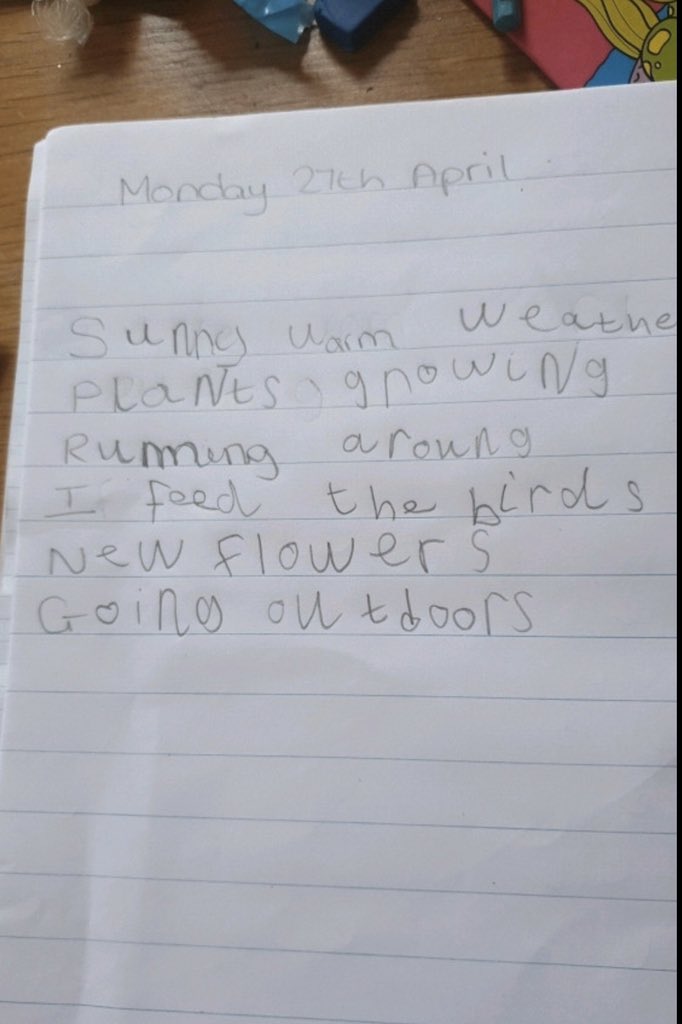 Monday 27th April
Sunny warm weathe
Plants growing
Running aroung
I feed the birds
New flowers
Going outdoors